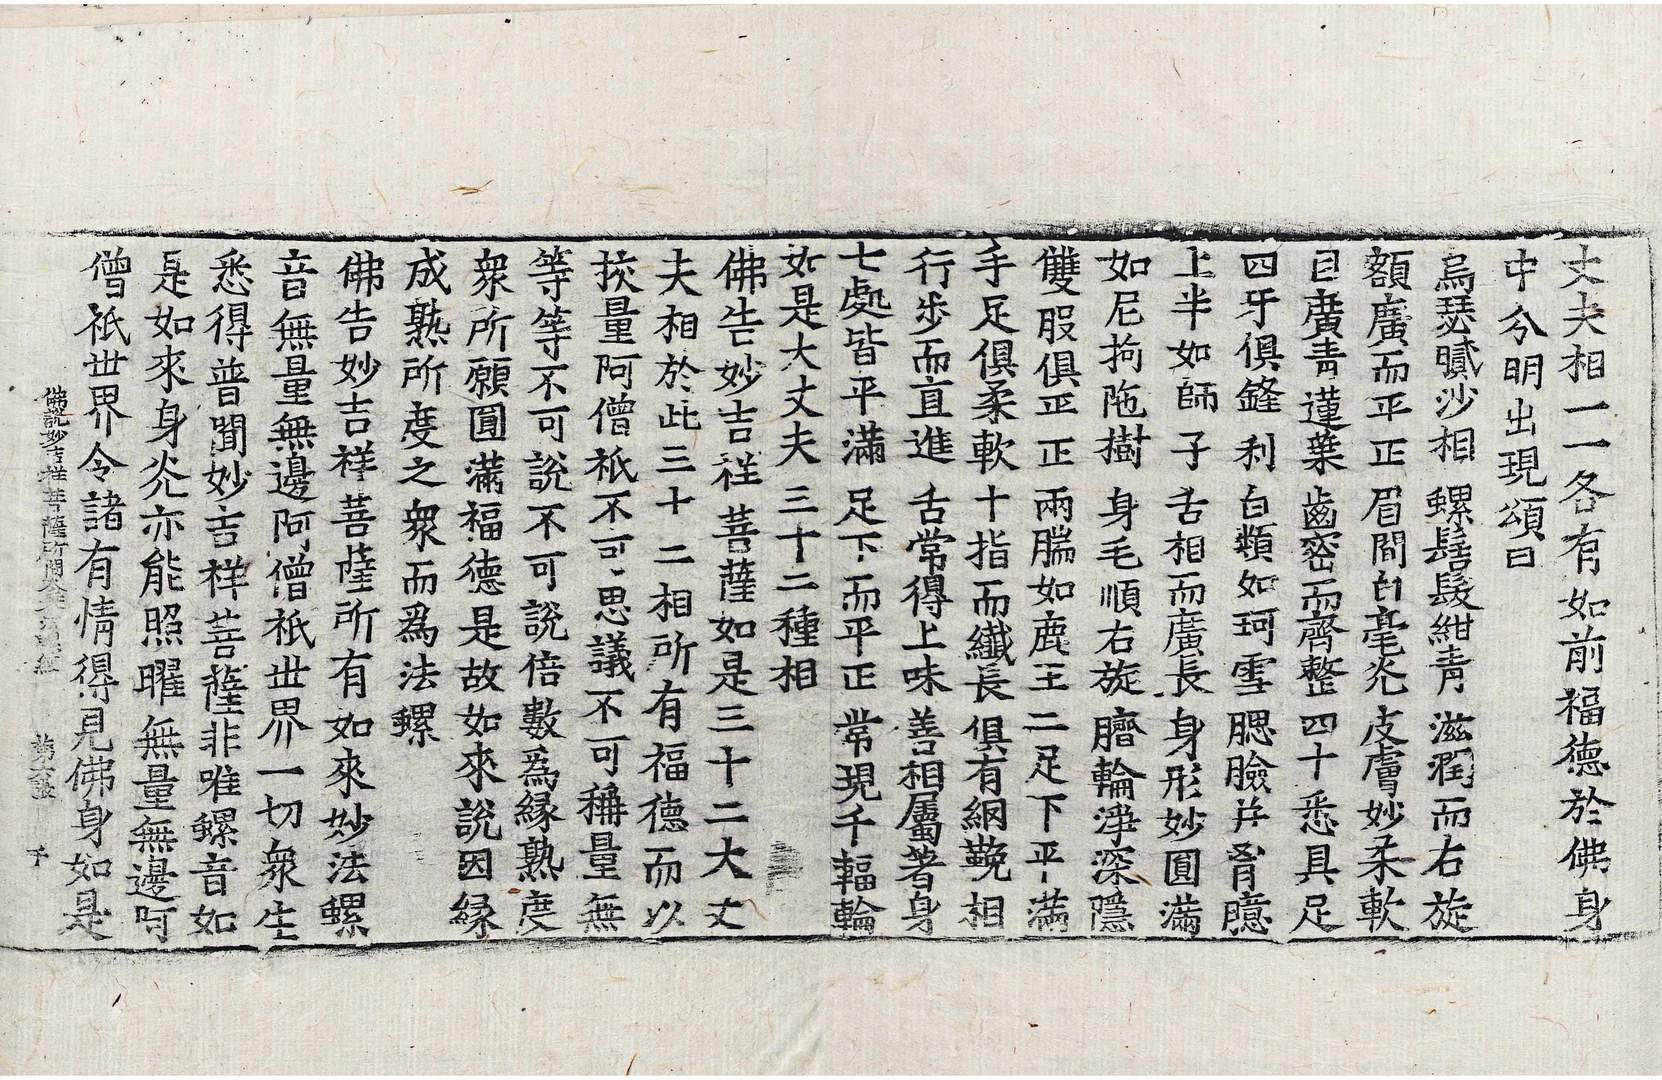 丈夫相一一各有如前福德於佛身
中分明出現頌曰
烏瑟膩沙相 螺髻髮紺青 滋潤而右旋
額廣而平正 眉間白毫光 皮膚妙柔軟
目廣青蓮葉 齒密而齊整 四十悉具足
四牙俱鋒利 白類如珂雪 腮臉并胷臆
上半如師子 舌相而廣長 身形妙圓滿
如尼拘陁樹 身毛順右旋 臍輪淨深隱
雙股俱平正 兩腨如鹿王 二足下平滿
手足俱柔軟 十指而纖長 俱有網鞔相
行步而直進 舌常得上味 善相屬著身
七處皆平滿 足下而平正 常現千輻輪
如是大丈夫 三十二種相
佛告妙吉祥菩薩如是三十二大丈
夫相於此三十二相所有福德而以
挍量阿僧祇不可思議不可稱量無
等等不可說不可說倍數爲緣熟度
衆所願圓滿福德是故如來說因緣
成熟所度之衆而爲法螺
佛告妙吉祥菩薩所有如來妙法螺
音無量無邊阿僧祇世界一切衆生
悉得普聞妙吉祥菩薩非唯螺音如
是如來身光亦能照曜無量無邊阿
僧祇世界令諸有情得見佛身如是
佛說妙吉祥菩薩所問大乘法螺經 第六張 千